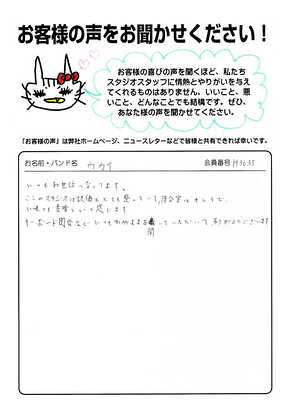 お客様の声をお聞かせください！
お客様の喜びの声を聞くほど、私たち
スタジオスタッフに情熱とやりがいを与え
てくれるものはありません。いいこと、悪
いこと、どんなことでも結構です。ぜひ、
あなた様の声を聞かせてください。
「お客様の声」は弊社ホームページ、ニュースレターなどで皆様と共有できれば幸いです。
お名前・バンド名 ウカイ 会員番号
いつもお世話になってます。
このスタジオは設備もとても整って
いつも 感じます
キーボード いただいて、ありがとうございます